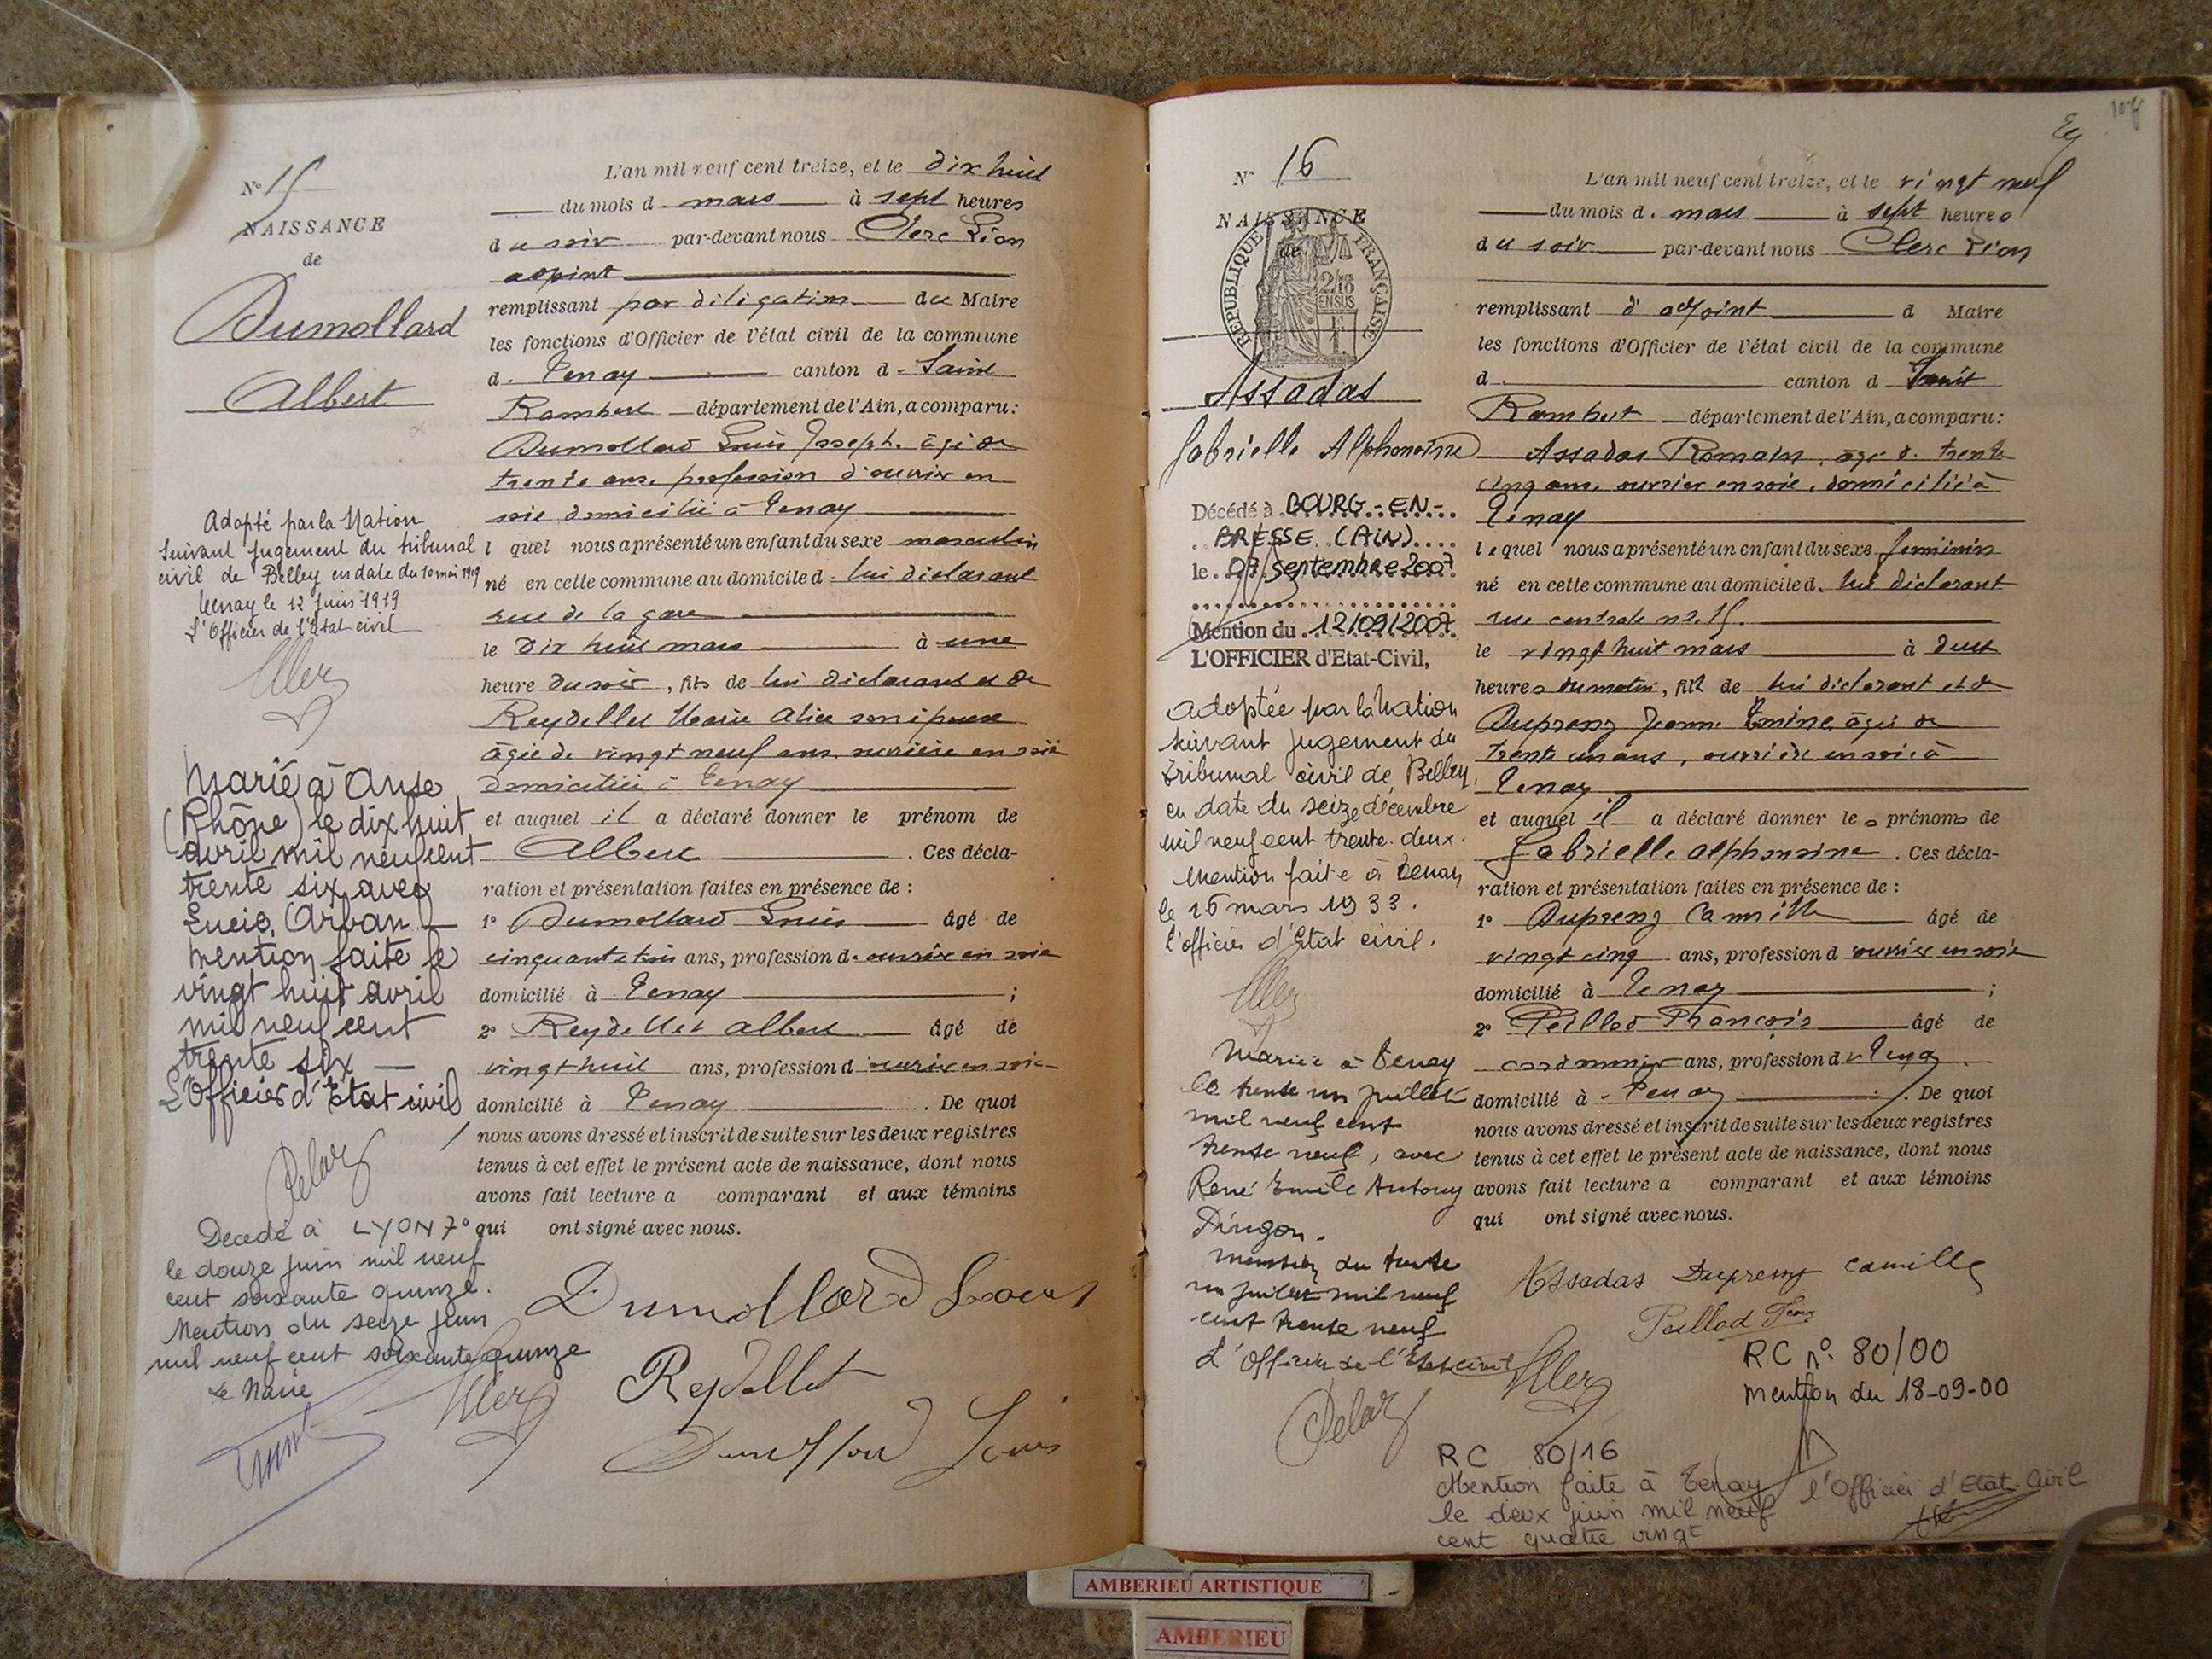 N° 15
NAISSANCE
de
Dumollard
Albert
Adopté par la Nation
suivant jugement du tribunal
civil de Belley en date du 10 mai 1919
Tenay le 12 Juin 1919
L'Officier de l'état civil
Marié à Anse
(Rhône) le dix huit
avril mil neuf cent
trente six avec
Lucie Arban
Mention faite le
vingt huit avril
mil neuf cent
trente six
L'Officier d'Etat civil
Delay
Decédé à LYON 7°
le douze juin mil neuf
cent soixante quinze.
Mention du seize juin
mil neuf cent soixante quinze
Le Maire
L'an mil neuf cent treize, et le dix huit
du mois d mars à sept heures
du soir par-devant nous Clerc Léon
adjoint
remplissant par délégation du Maire
les fonctions d'Officier de l'état civil de la commune
d. Tenay canton d - Saint
Rambert département de l'Ain, a comparu :
Dumollard Louis Joseph. âgé de
trente ans, profession d'ouvrier en
soie domicilié à Tenay
l quel nous a présenté un enfant du sexe masculin
né en cette commune au domicile d. lui déclarant
rue de la gare
le dix huit mars à une
heure du soir, fils de lui déclarant et de
Reydellet Marie Alice son épouse
âgée de vingt neuf ans, ouvrière en soie
domiciliée à Tenay
et auquel il a déclaré donner le prénom de
Albert . Ces décla-
ration et présentation faites en présence de :
1° Dumollard Louis âgé de
cinquante trois ans, profession d. ouvrier en soie
domicilié à Tenay ;
2° Reydellet Albert âgé de
vingt huit ans, profession d ouvrier en soie
domicilié à Tenay . De quoi
nous avons dressé et inscrit de suite sur les deux registres
tenus à cet effet le présent acte de naissance, dont nous
avons fait lecture a comparant et aux témoins
qui ont signé avec nous.
Dumollard Louis
Reydellet
Dumollard Louis
N° 16
NAISSANCE
de
REPUBLIQUE FRANÇAISE
2/10 EN SUS
Assadas
Gabrielle Alphonsine
Décédé à BOURG-EN-
BRESSE (AIN)
le 07 Septembre 2007
Mention du 12/09/2007
L'OFFICIER d'Etat-Civil,
adoptée par la Nation
suivant jugement du
tribunal civil de Belley,
en date du seize décembre
mil neuf cent trente-deux.
Mention faite à Tenay
le 16 mars 1933.
l'officier d'Etat civil.
Mariée à Tenay
le trente un juillet
mil neuf cent
trente neuf, avec
René Emile Antony
Mention du trente
un juillet mil neuf
cent trente neuf
L'Officier de l'Etat civil
Delay
L'an mil neuf cent treize, et le vingt neuf
du mois d. mars à sept heures
du soir par-devant nous Clerc Léon
remplissant d'adjoint d Maire
les fonctions d'Officier de l'état civil de la commune
d. canton d Saint
Rambert département de l'Ain, a comparu :
Assadas Romain, âgé de trente
cinq ans, ouvrier en soie, domicilié à
Tenay
lequel nous a présenté un enfant du sexe féminin
né en cette commune au domicile d. lui déclarant
rue centrale n° 15.
le vingt huit mars à deux
heures du matin, fille de lui déclarant et de
Dupresy Jeanne âgée de
trente un ans, ouvrière en soie à
Tenay
et auquel il a déclaré donner les prénoms de
Gabrielle Alphonsine . Ces décla-
ration et présentation faites en présence de :
1° Dupresy Camille âgé de
vingt cinq ans, profession d ouvrier en soie
domicilié à Tenay ;
2° Peillod François âgé de
cordonnier ans, profession d
domicilié à - Tenay . De quoi
nous avons dressé et inscrit de suite sur les deux registres
tenus à cet effet le présent acte de naissance, dont nous
avons fait lecture a comparant et aux témoins
qui ont signé avec nous.
Assadas Dupresy Camille
Peillod
RC n° 80/00
Mention du 18-09-00
RC 80/16
Mention faite à Tenay
le deux juin mil neuf
cent quatre vingt
l'Officier d'Etat-Civil
AMBERIEU ARTISTIQUE
AMBERIEU